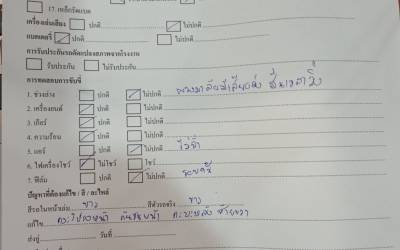 17. เหล็กรัดแบต
เครื่องเล่นเสียง ปกติ ไม่ปกติ
แบตเตอรี่ ปกติ ไม่ปกติ
การรับประกันรถดัดแปลงสภาพจากโรงงาน
รับประกัน ไม่รับประกัน
การทดสอบการขับขี่
1. ช่วงล่าง ปกติ ไม่ปกติ
2. เครื่องยนต์ ปกติ ไม่ปกติ
3. เกียร์ ปกติ ไม่ปกติ
4. ความร้อน ปกติ ไม่ปกติ
5. แอร์ ปกติ ไม่ปกติ
6. ไฟเครื่องโชว์ ไม่โชว์ โชว์
7. ฟิล์ม ปกติ ไม่ปกติ
ปัญหาที่ต้องแก้ไข / สี / อะไหล่
สีรถในหน้าเล่ม ขาว สีตัวรถจริง ขาว
แก้ไข
ส่งอู่ วันที่